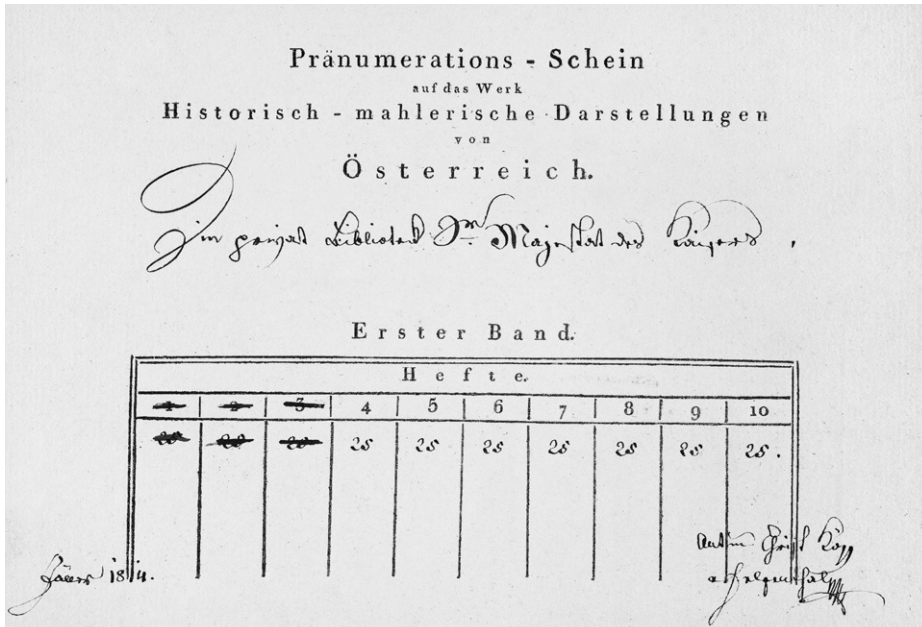 Pränumerations - Schein
auf das Werk
Historisch - mahlerische Darstellungen
von
Österreich.
Die privat Bibliotek Sr Majestät des Kaisers.
Erster Band.
Hefte.
1 2 3 4 5 6 7 8 9 10
25 25 25 25 25 25 25 25 25 25.
Jäner 1814.